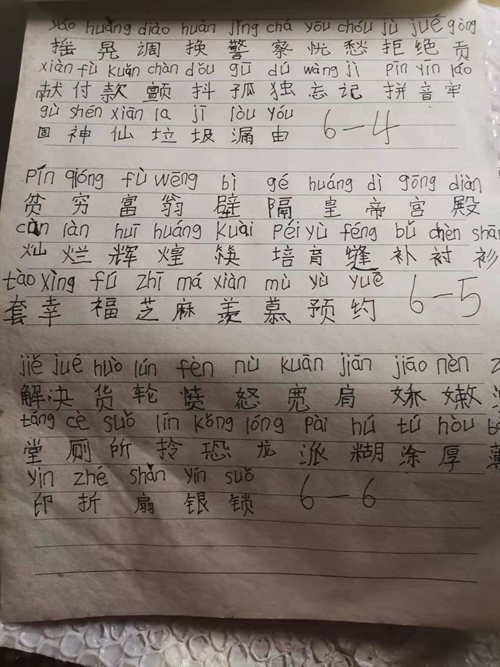 yáo huàng diào huàn jǐng chá yōu chóu jù jué gòng
摇 晃 调 换 警 察 忧 愁 拒 绝 贡
xiàn fù kuǎn chàn dǒu gū dú wàng jì pīn yīn láo
献 付 款 颤 抖 孤 独 忘 记 拼 音 牢
gù shén xiān la jī lòu yóu
固 神 仙 垃 圾 漏 由 6-4
pín qióng fù wēng bì gé huáng dì gōng diàn
贫 穷 富 翁 壁 隔 皇 帝 宫 殿
càn làn huī huáng kuài péi yù féng bǔ chèn shān
灿 烂 辉 煌 筷 培 育 缝 补 衬 衫
tào xìng fú zhī má xiàn mù yù yuē
套 幸 福 芝 麻 羡 慕 预 约 6-5
jiě jué huò lún fèn nù kuān jiān jiāo nèn
解 决 货 轮 愤 怒 宽 肩 娇 嫩
táng cè suǒ līn kǒng lóng pài hú tú hòu
堂 厕 所 拎 恐 龙 派 糊 涂 厚 薄
yìn zhé shàn yín suǒ
印 折 扇 银 锁 6-6